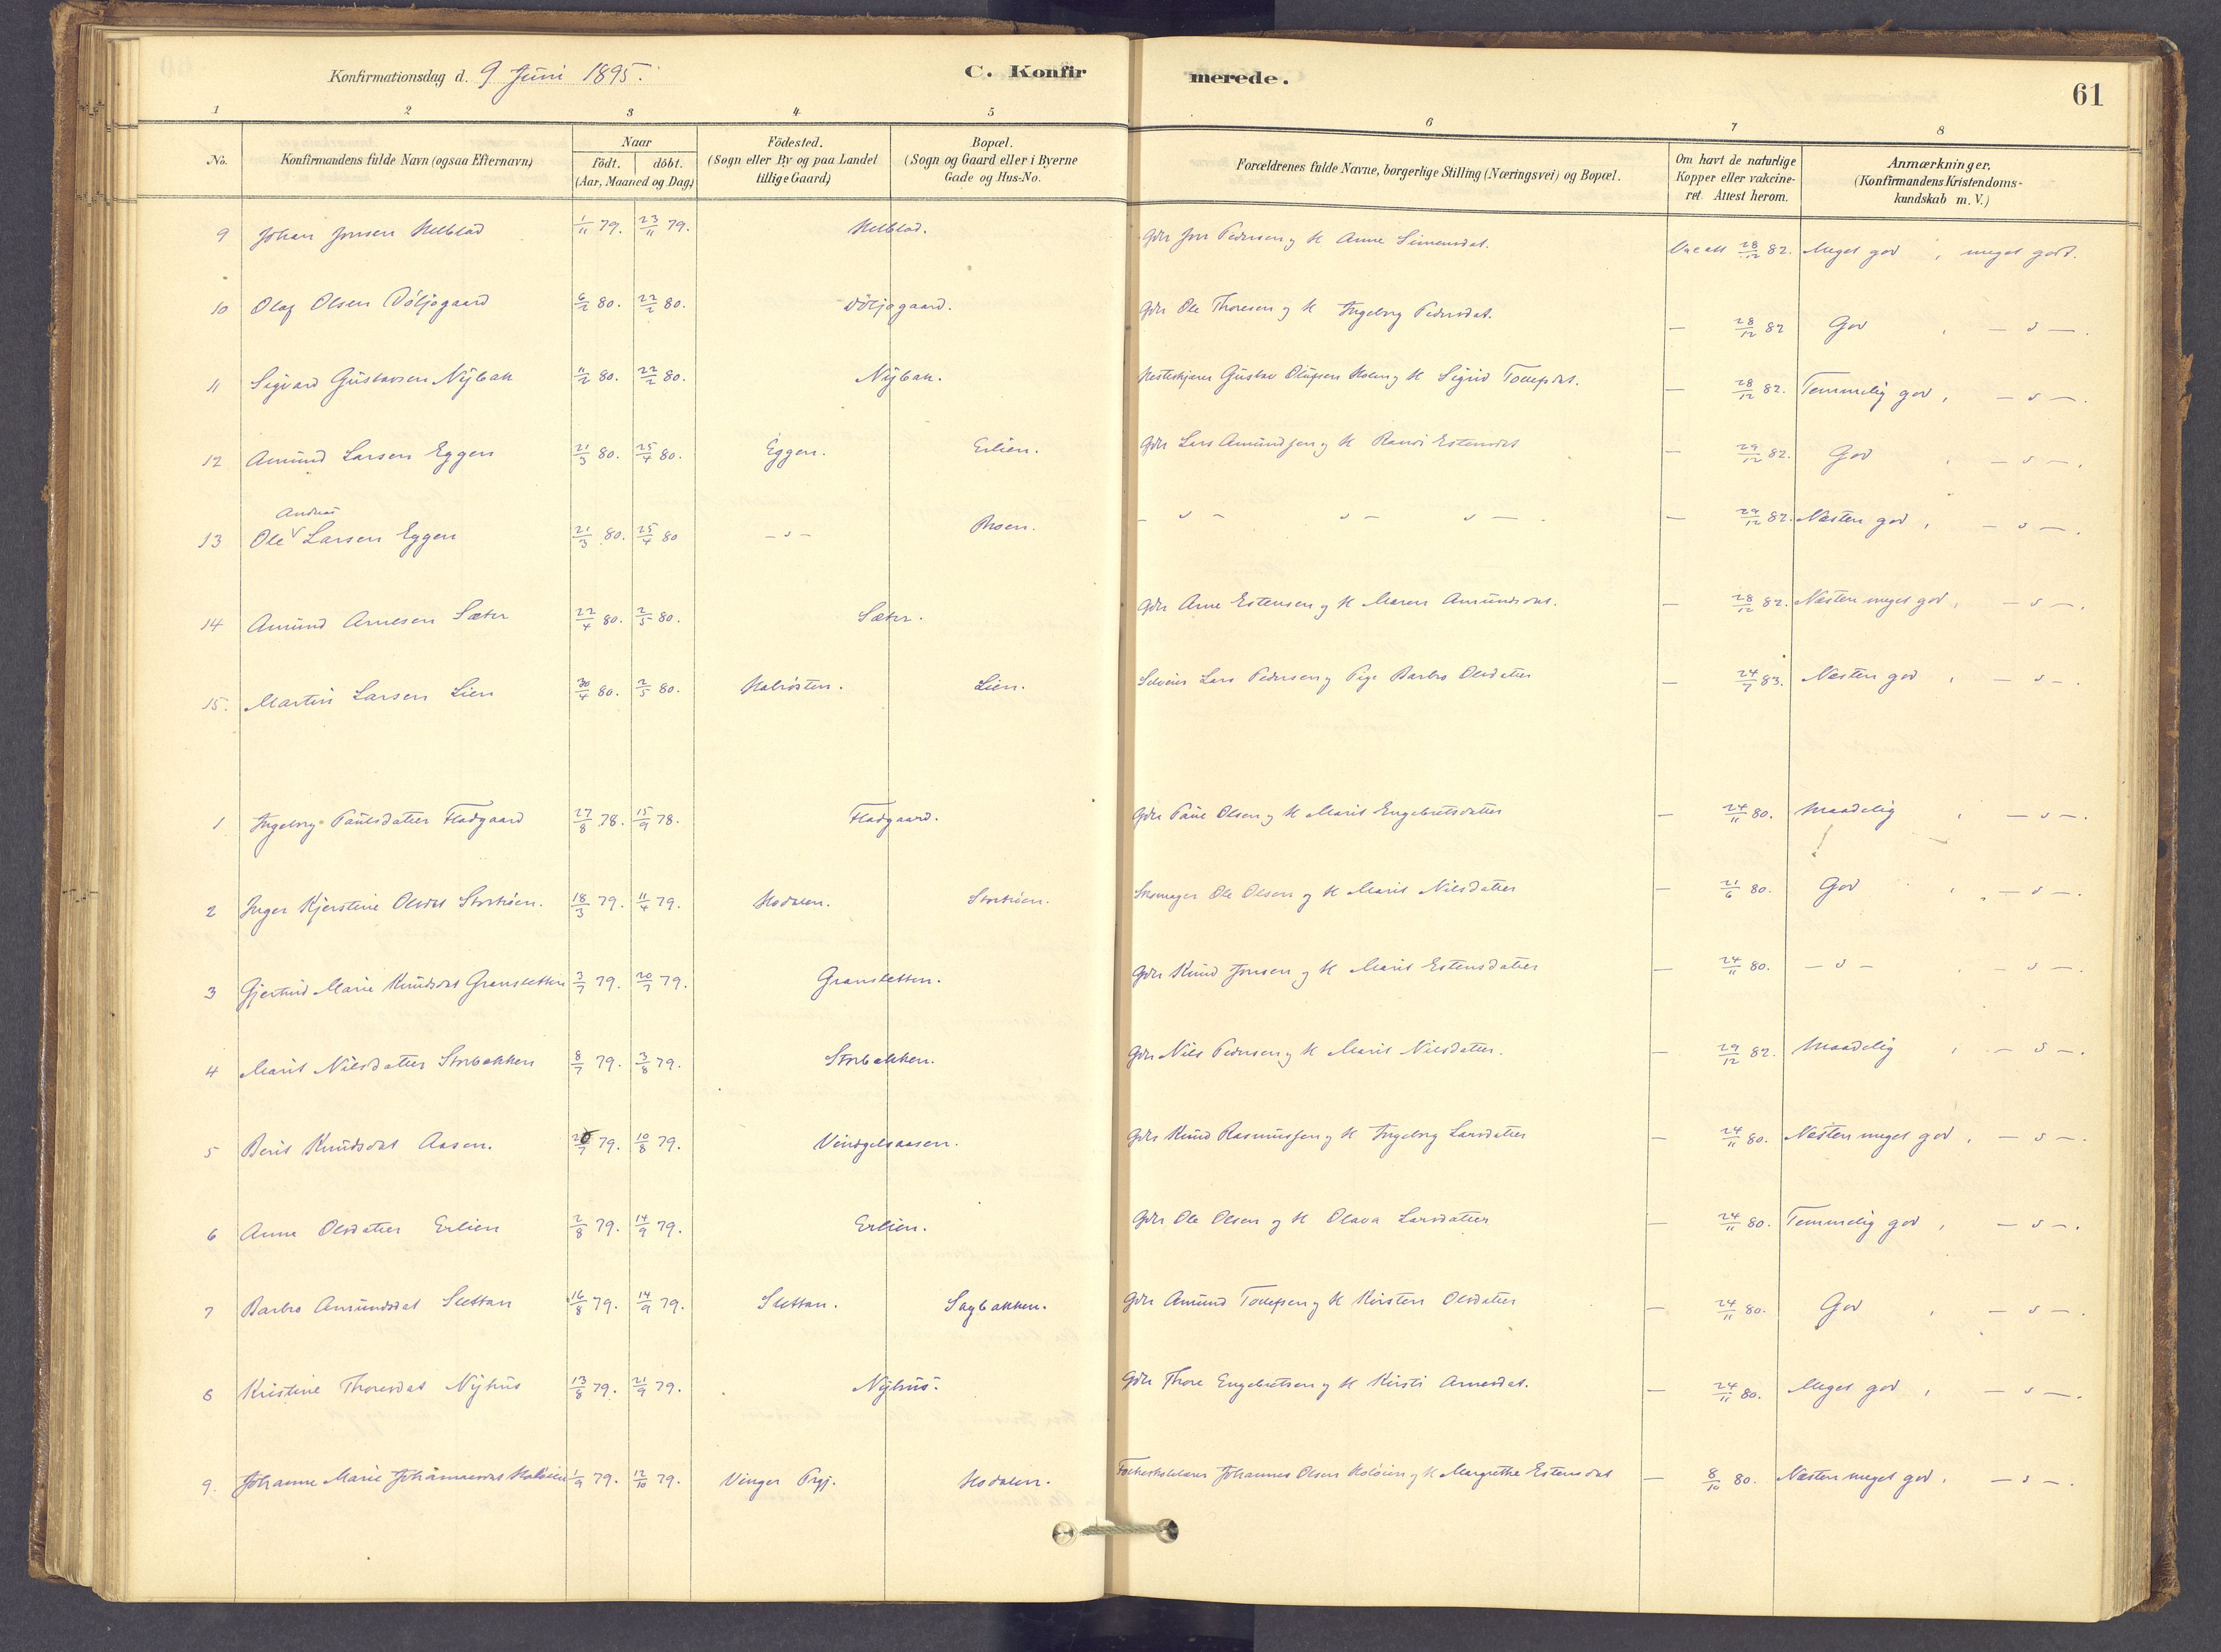 Konfirmationsdag d. 9 Juni 1895.
C. Konfirmerede.
61
1 2 3 4 5 6 7 8
No.
Konfirmandens fulde Navn (ogsaa Efternavn)
Naar
födt. döbt.
(Aar, Maaned og Dag)
Födested.
(Sogn eller By og paa Landet
tillige Gaard)
Bopæl.
(Sogn og Gaard eller i Byerne
Gade og Hus-No.
Forældrenes fulde Navne, borgerlige Stilling (Næringsvei) og Bopæl.
Om havt de naturlige
Kopper eller vakcine-
ret. Attest herom.
Anmærkninger.
(Konfirmandens Kristendoms-
kundskab m. V.)
9 Johan Jonsen 1/11 79. 23/11 79. Gdr Jon Pedersen og H Anne Simensdat. 28/12 82. Meget god, meget godt.
10 Olaf Olsen Döljogaard 6/2 80. 22/2 80. Döljogaard. Gdr Ole Thoresen og H Ingeborg Pedersdat. — 28/12 82 God, — " —.
11 Sigvard Gustavsen Nÿbak 11/2 80. 22/2 80. Nÿbak. Gustav Olufsen og H Sigrid — 28/12 82. Temmelig god, — " —.
12 Amund Larsen Eggen 21/3 80. 25/4 80. Eggen. Erlien. Gdr Lars Amundsen og H Randi Estensdat — 29/12 82. God, — " —.
Andreas
13 Ole v Larsen Eggen 21/3 80. 25/4 80 — " — Moen. — " — " — " —. — 29/12 82. Næsten god, — " —.
14 Amund Arnesen Sæter 22/4 80. 2/5 80. Sæter. Gdr Arne Estensen og H Maren Amundsdat. — 28/12 82. Næsten meget god, — " —.
15. Martin Larsen Lien 30/4 80. 2/5 80. Lien. Selveier Lars Pedersen og Pige Barbro Olsdatter — 24/7 83. Næsten god, — " —.
1 Ingeborg Paulsdatter Fladgaard 27/8 78. 15/9 78. Fladgaard. Gdr Paul Olsen og H Marit Engebretsdatter — 24/11 80. Maadelig, — " —.
2 Inger Kjerstine Olsdat Storhöen. 18/3 79. 11/4 79. Hodalen. Storhöen. Skomager Ole Olsen og H Marit Nilsdatter — 21/6 80. God, — " —.
3 Gjertrud Marie Knudsdat Gransletten 3/7 79. 20/7 79. Gransletten. Gdr Knud Jonsen og H Marit Estensdatter — 24/11 80. — " —, — " —.
4 Marit Nilsdatter Storbekken 8/7 79. 3/8 79. Storbekken. Gdr Nils Pedersen og H Marit Nilsdatter. — 29/12 82. Maadelig, — " —.
5 Berit Knudsdat Aasen. 79. 10/8 79. Vingelsaasen. Gdr Knud Rasmussen og H Ingeborg Larsdatter — 24/11 80. Næsten meget god, — " —.
6 Anne Olsdatter Erlien 2/8 79. 14/9 79. Erlien. Gdr Ole Olsen og H Olava Larsdatter — 24/11 80. Temmelig god, — " —.
7 Barbro Amundsdat Slettan 16/8 79. 14/9 79. Slettan. Sagbakken. Gdr Amund Tollefsen og H Kirsten Olsdatter — 24/11 80. God, — " —.
8 Kristine Thoresdat Nÿhus 13/8 79. 21/9 79. Nÿhus. Gdr Thore Engebretsen og H Kirsti Arnesdat. — 24/11 80. Meget god, — " —.
9. Johanne Marie Johannesdat Kolöien 1/9 79. 12/10 79. Vinger Prgj. Hodalen. Folkeskolelærer Johannes Olsen Kolöien og H Margrethe Estensdat — 8/10 80. Næsten meget god, — " —.